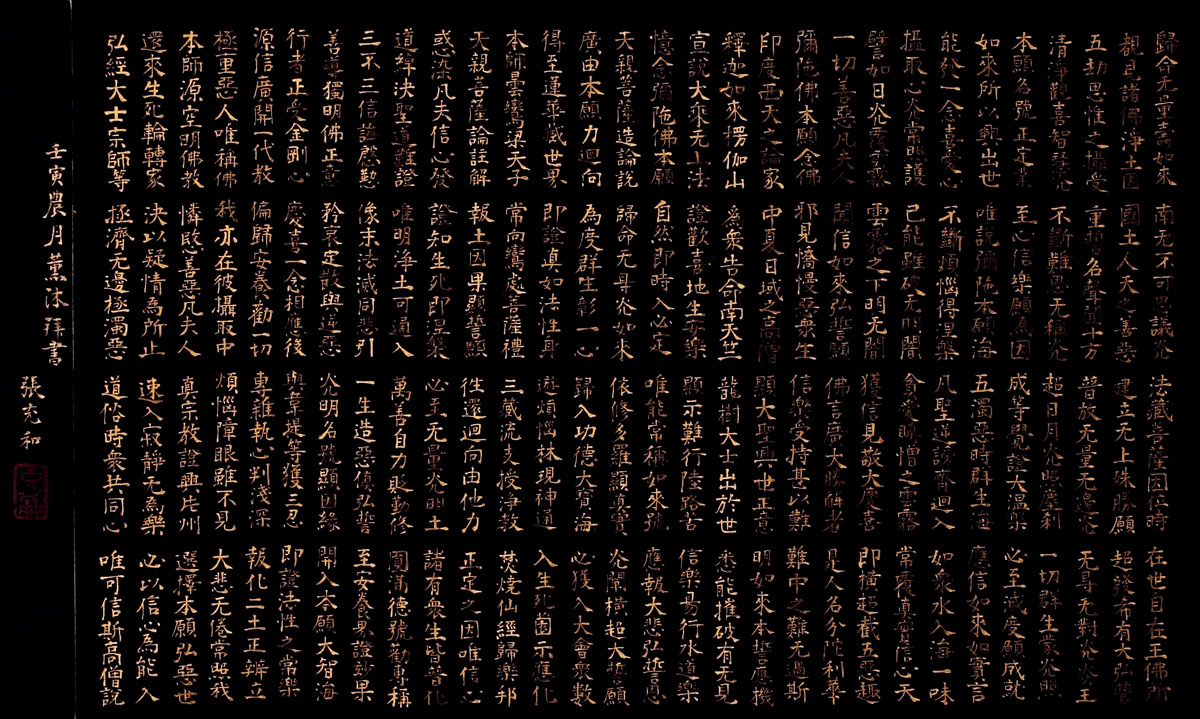 歸命无量壽如來 南无不可思議光 法藏菩薩因位時 在世自在王佛所
覩見諸佛淨土因 國土人天之善惡 建立无上殊勝願 超發希有大弘誓
五劫思惟之攝受 重誓名聲聞十方 普放无量无邊光 无㝵无對光炎王
清淨歡喜智慧光 不斷難思无稱光 超日月光照塵刹 一切群生蒙光照
本願名號正定業 至心信樂願為因 成等覺證大涅槃 必至滅度願成就
如來所以興出世 唯說彌陁本願海 五濁惡時群生海 應信如來如實言
能發一念喜愛心 不斷煩惱得涅槃 凡聖逆謗齊迴入 如衆水入海一味
攝取心光常照護 已能雖破无明闇 貪愛瞋憎之雲霧 常覆真實信心天
譬如日光覆雲霧 雲霧之下明无闇 獲信見敬大慶喜 即橫超截五惡趣
一切善惡凡夫人 聞信如來弘誓願 佛言廣大勝解者 是人名分陀利華
彌陁佛本願念佛 邪見憍慢惡衆生 信樂受持甚以難 難中之難无過斯
印度西天之論家 中夏日域之高僧 顯大聖興世正意 明如來本誓應機
釋迦如來楞伽山 為衆告命南天竺 龍樹大士出於世 悉能摧破有无見
宣說大乘无上法 證歡喜地生安樂 顯示難行陸路苦 信樂易行水道樂
憶念彌陁佛本願 自然即時入必定 唯能常稱如來號 應報大悲弘誓恩
天親菩薩造論說 歸命无㝵光如來 依修多羅顯真實 光闡橫超大誓願
廣由本願力迴向 為度群生彰一心 歸入功德大寶海 必獲入大會衆數
得至蓮華藏世界 即證真如法性身 遊煩惱林現神通 入生死薗示應化
本師曇鸞梁天子 常向鸞處菩薩禮 三藏流支授淨教 焚燒仙經歸樂邦
天親菩薩論註解 報土因果顯誓願 往還迴向由他力 正定之因唯信心
惑染凡夫信心發 證知生死即涅槃 必至无量光明土 諸有衆生皆普化
道綽決聖道難證 唯明淨土可通入 萬善自力貶勤修 圓滿德號勸專稱
三不三信誨慇懃 像末法滅同悲引 一生造惡值弘誓 至安養界證妙果
善導獨明佛正意 矜哀定散與逆惡 光明名號顯因緣 開入本願大智海
行者正受金剛心 慶喜一念相應後 與韋提等獲三忍 即證法性之常樂
源信廣開一代教 偏歸安養勸一切 專雜執心判淺深 報化二土正辨立
極重惡人唯稱佛 我亦在彼攝取中 煩惱障眼雖不見 大悲无倦常照我
本師源空明佛教 憐愍善惡凡夫人 真宗教證興片州 選擇本願弘惡世
還來生死輪轉家 決以疑情為所止 速入寂靜无為樂 必以信心為能入
弘經大士宗師等 拯濟无邊極濁惡 道俗時衆共同心 唯可信斯高僧說
壬寅農月薰沐拜書
張充和